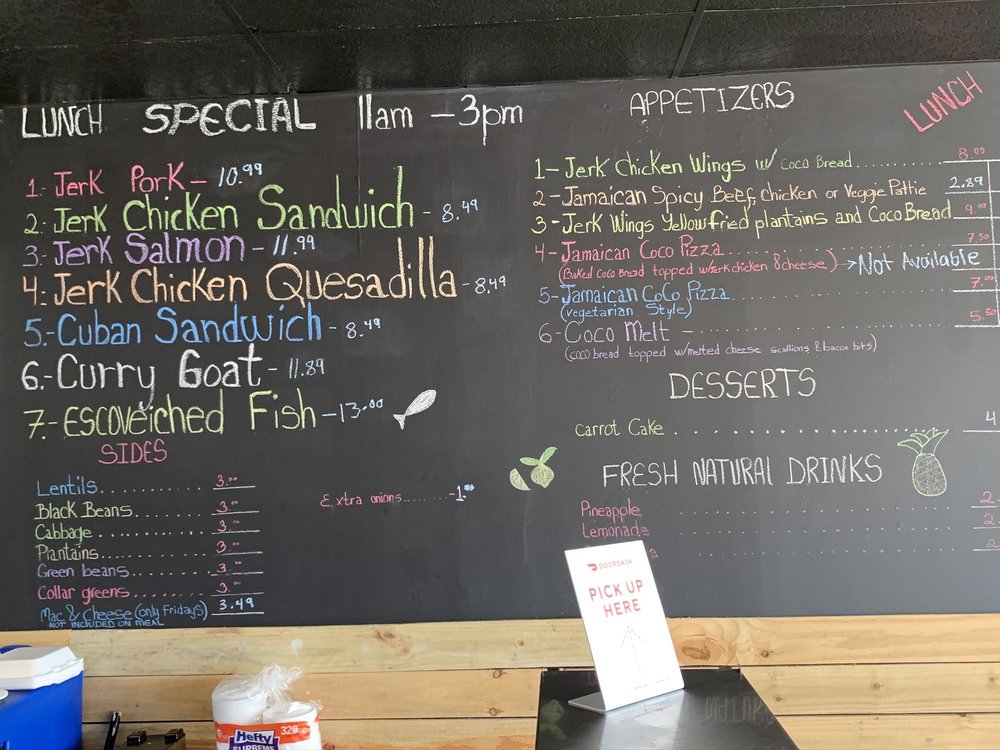 LUNCH SPECIAL 11am - 3pm
1- Jerk Pork - 10.99
2- Jerk Chicken Sandwich - 8.49
3- Jerk Salmon - 11.99
4- Jerk Chicken Quesadilla - 8.49
5- Cuban Sandwich - 8.49
6.- Curry Goat - 11.89
7.- ESCOVEICHED Fish - 13.00
SIDES
Lentils........ 3.00
Black Beans..... 3.00
Cabbage........ 3.00
Plantains....... 3.00
Green beans..... 3.00
Collar greens.... 3.00
Mac & Cheese (only Fridays) 3.49
NOT INCLUDED ON MEAL
Extra onions........-1.00
APPETIZERS
LUNCH
1- Jerk Chicken Wings w/ Coco Bread........ 8.00
2- Jamaican Spicy Beef, Chicken or Veggie Pattie 2.89
3- Jerk Wings Yellow fried plantains and Coco Bread 9.00
4- Jamaican Coco Pizza ........ 7.50
(Baked Coco Bread topped w/jerk chicken & cheese) → Not Available
5- Jamaican CoCo Pizza ........ 7.00
(vegetarian Style)
6- Coco Melt - ........ 5.50
(coco bread topped w/melted cheese scallions & bacon bits)
DESSERTS
Carrot Cake ........ 4
FRESH NATURAL DRINKS
Pineapple ........ 2
Lemonade ........ 2
........ 2
DOORDASH
PICK UP
HERE
Hefty
SUPREME
320